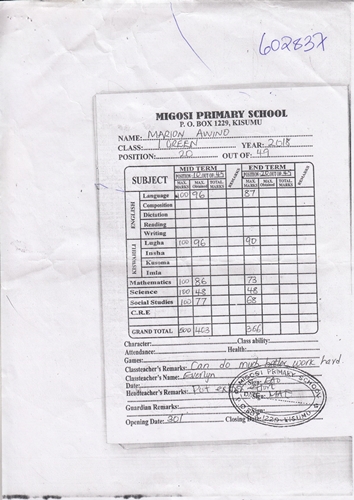 602837
MIGOSI PRIMARY SCHOOL
P. O. BOX 1229, KISUMU
NAME: MARION AWINO
CLASS: 1 GREEN YEAR: 2018
POSITION: 20 OUT OF: 49
SUBJECT MID TERM END TERM
POSITION OUT OF POSITION OUT OF
MAX. MARKS Obtained TOTAL MARKS REMARKS MAX. MARKS Obtained TOTAL MARKS REMARKS
ENGLISH
Language 100 96 87
Composition
Dictation
Reading
Writing
KISWAHILI
Lugha 100 96 90
Insha
Kusoma
Imla
Mathematics 100 86 73
Science 100 48 48
Social Studies 100 77 68
C.R.E
GRAND TOTAL 500 403 366
Character: Class ability:
Attendance: Health:
Games:
Classteacher's Remarks: Can do much better work hard
Classteacher's Name: Everlyn
Date:
Headteacher's Remarks: Put extra effort
Guardian Remarks:
Opening Date: 201 Closing Date:
MIGOSI PRIMARY SCHOOL
P. O. BOX 1229, KISUMU